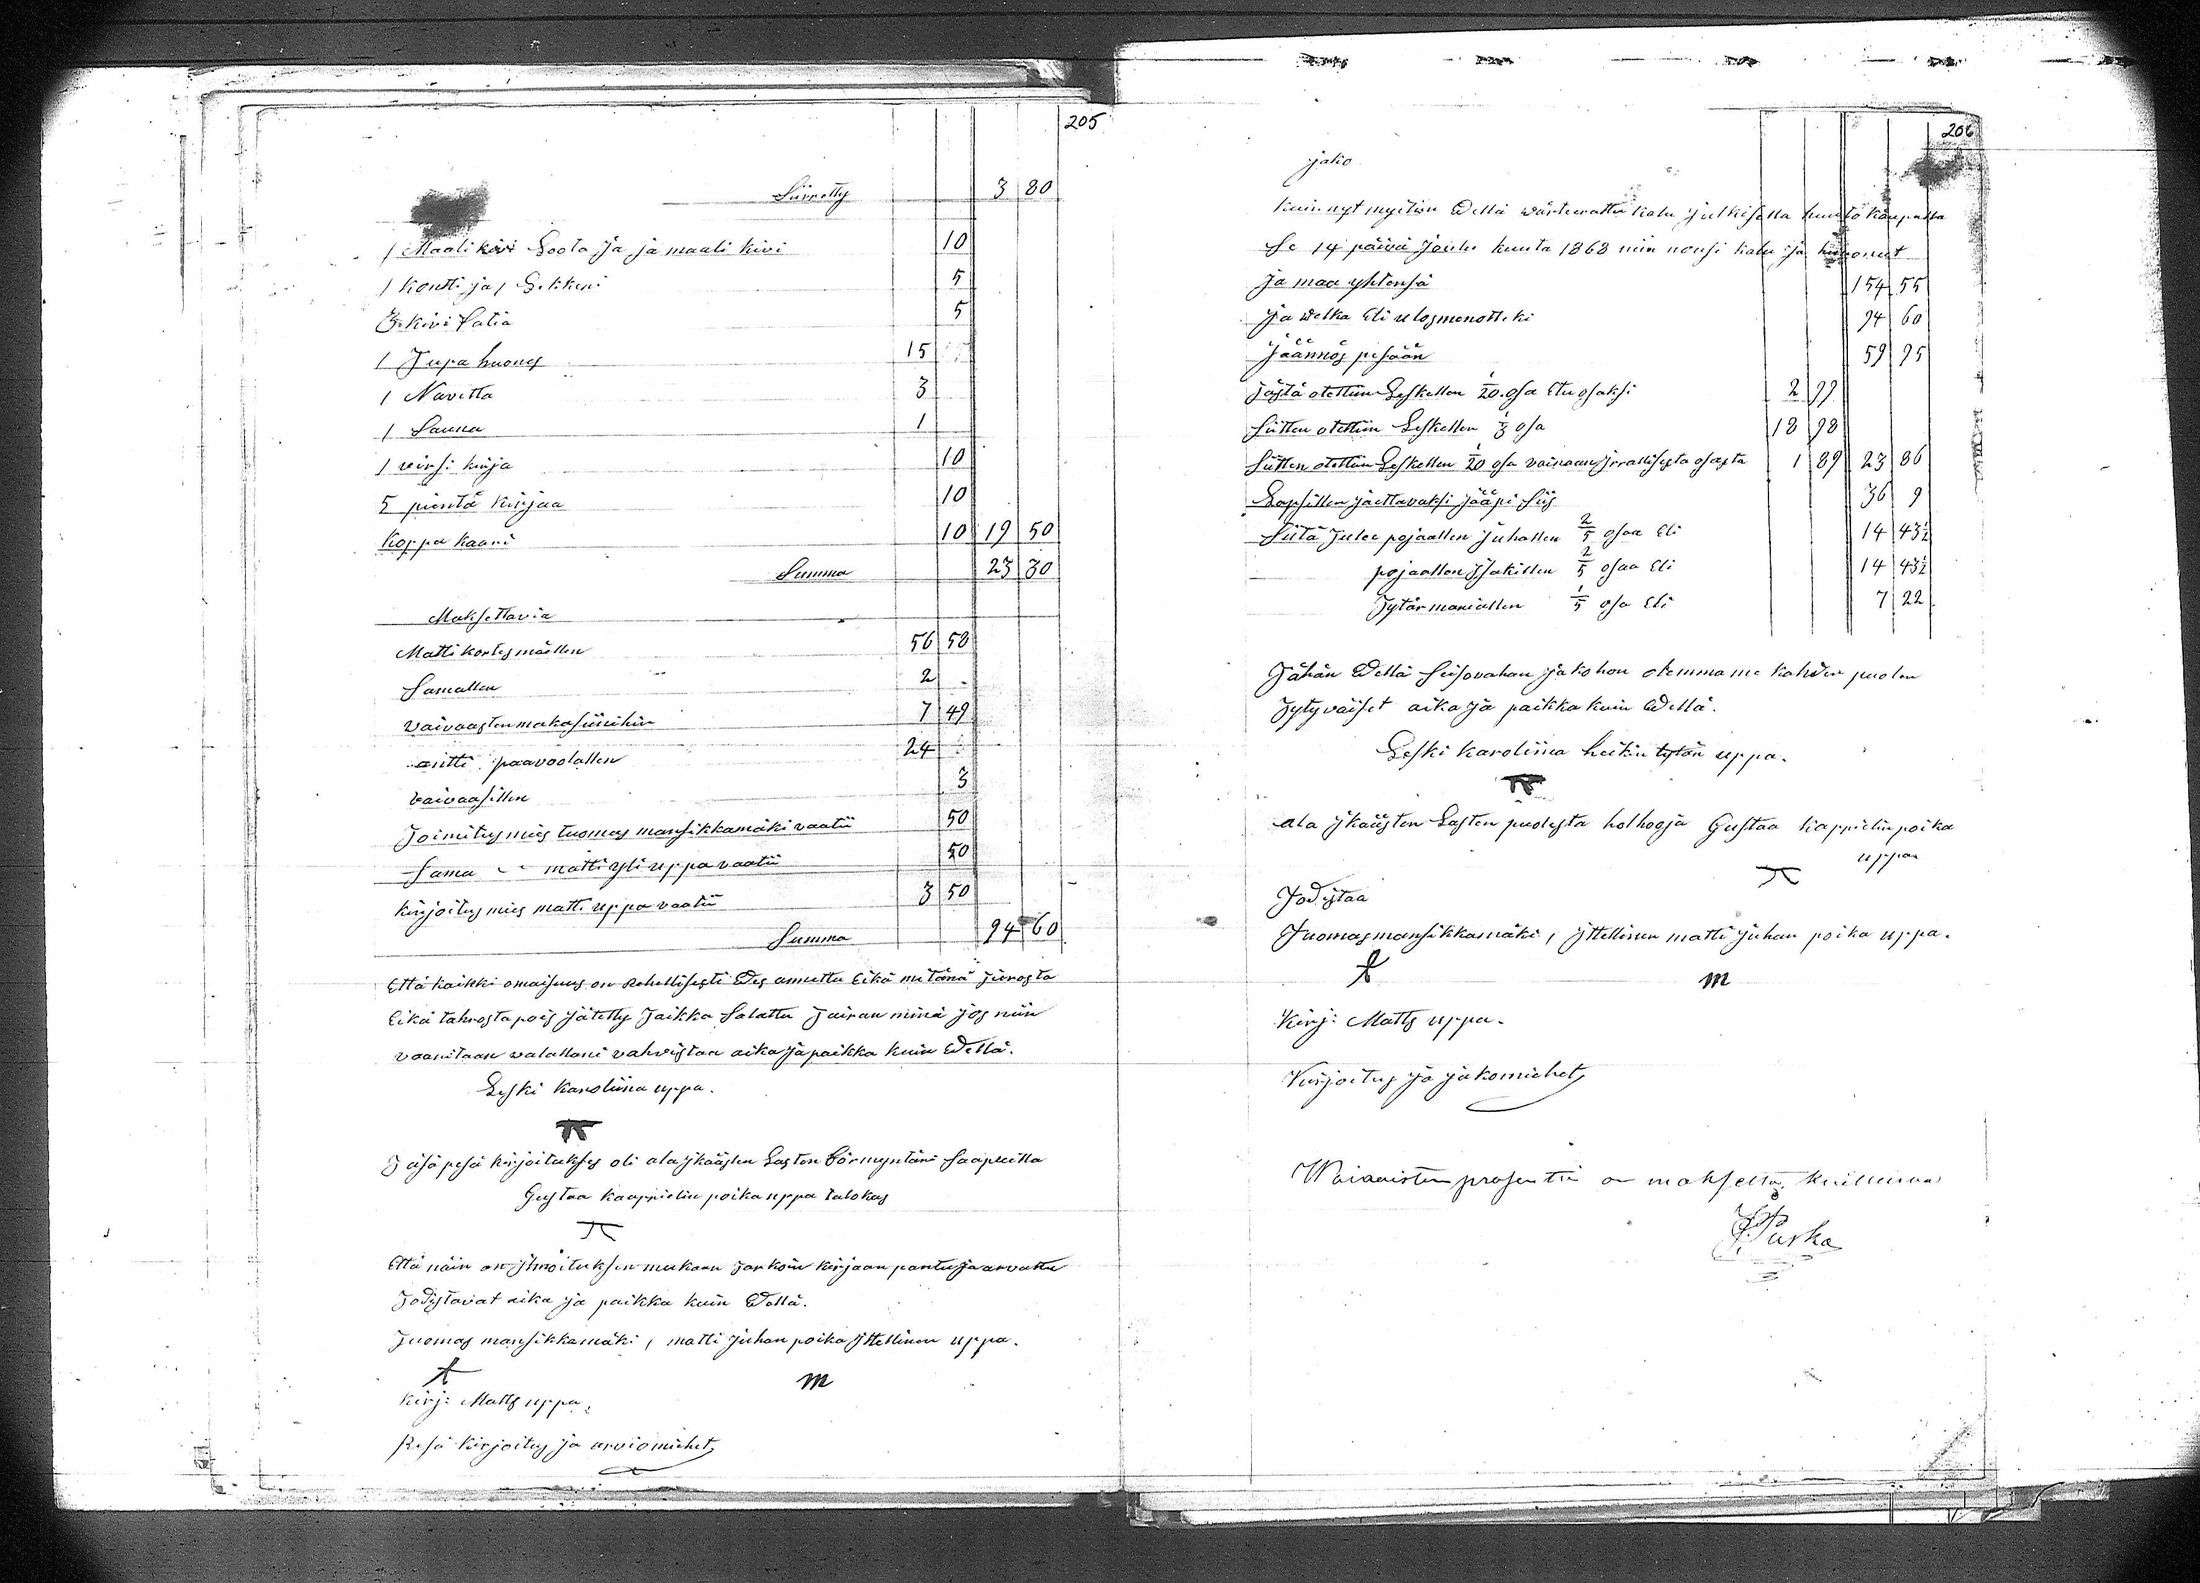 205
Siirretty 3 80
1 Maali kivi Loota ja ja maali kivi 10
1 kontti ja 1 Lekkeri 5
3 kivi Vatia 5
1 Tupa huones 15
1 Navetta 3
1 Sauna 1
1 virsi kirja 10
5 pientä kirjaa 10
Koppa kaani 10 19 50
Summa 23 30
Maksettavia
Matti kortesmäellen 56 58
Samallen 2 -
vaivaasten makasiinihin 7 49
antti paavoolallen 24
vaivaasillen 3
Toimitus mies tuomas mansikkamäki vaatii 50
Sama - " - matti yli uppa vaatii 50
kirjoitus mies matti uppa vaatii 3 50
Summa 94 60
Että kaikki omaisuus on rehellisesti Edes annettu Eikä mitänä turosta
Eikä tahrosta pois jätetty Taikka Salattu Taitan minä jos niin
vaaditaan valallani vahvistaa aika ja paikka kuin Edellä.
Leski karoliina uppa.
Täsä pesä kirjoitukses oli alaikääsden Lasten Förmyntäri Saapuilla
Gustaa kaappielin poika uppa talokas
Että näin on ilmoituksen mukaan tarkoin kirjaan pantu ja arvattu
Todistavat aika ja paikka kuin Edellä.
Tuomas mansikkamäki, matti juhan poika Ittellinen uppa.
t m
kirj: Matts uppa.
Pesä kirjoitus ja arviomiehet
206
jako
kuin nyt myitiin Edellä wärteerattu kalu julkisella huuto kaupalla
Se 14 päivä joulu kuuta 1868 niin nousi kalu ja huonet
ja maa yhtensä 154 55
ja welka Eli ulosmenotteki 94 60
Jäännös pesään 59 95
Tästä otettiin Leskellen 1/20 osa Etu osaksi 2 99
Siitten otettiin Leskellen 1/3 osa 18 98
Siitten otettiin Leskellen 1/20 osa vainaan Irrallisesta osasta 1 89 23 86
Lapsillen jaettavaksi jääpi Siis 36 9
Siitä Tulee pojaallen juhallen 2/5 osaa Eli 14 43½
pojaallen Isakillen 2/5 osaa Eli 14 43½
Tytär mariallen 1/5 osa Eli 7 22
Tähän Edellä Seisovahan jakohon olemma me kahden puolen
Tytyväiset aika ja paikka kuin Edellä.
Leski karoliina heikin tytär uppa.
ala ikäästen Lasten puolesta holhooja Gustaa kappielin poika
uppa
Todistaa
Tuomas mansikkamäki, Ittellinen matti juhan poika uppa.
t m
Kirj: Matts uppa.
Kirjoitus ja jakomiehet
Waivaisten prosentti on maksettu, kuitteeraa
Purka